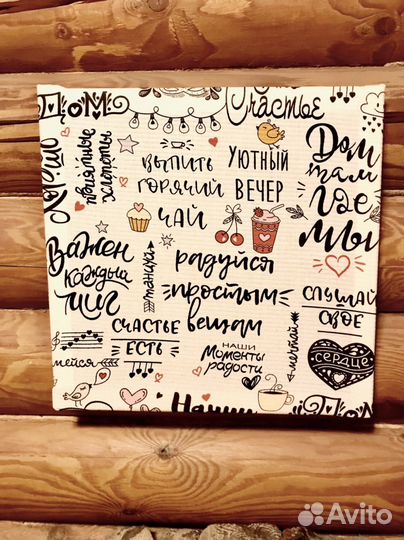 Дом
Счастье
приятные
хлопоты
выпить
горячий
чай
уютный
вечер
Дом
там
где
мы
Важен
каждый
миг
танцуй
радуйся
простым
вещам
слушай
своё
сердце
счастье
есть
наши
моменты
радости
мечтай
мейся
Наши
Дом
Avito